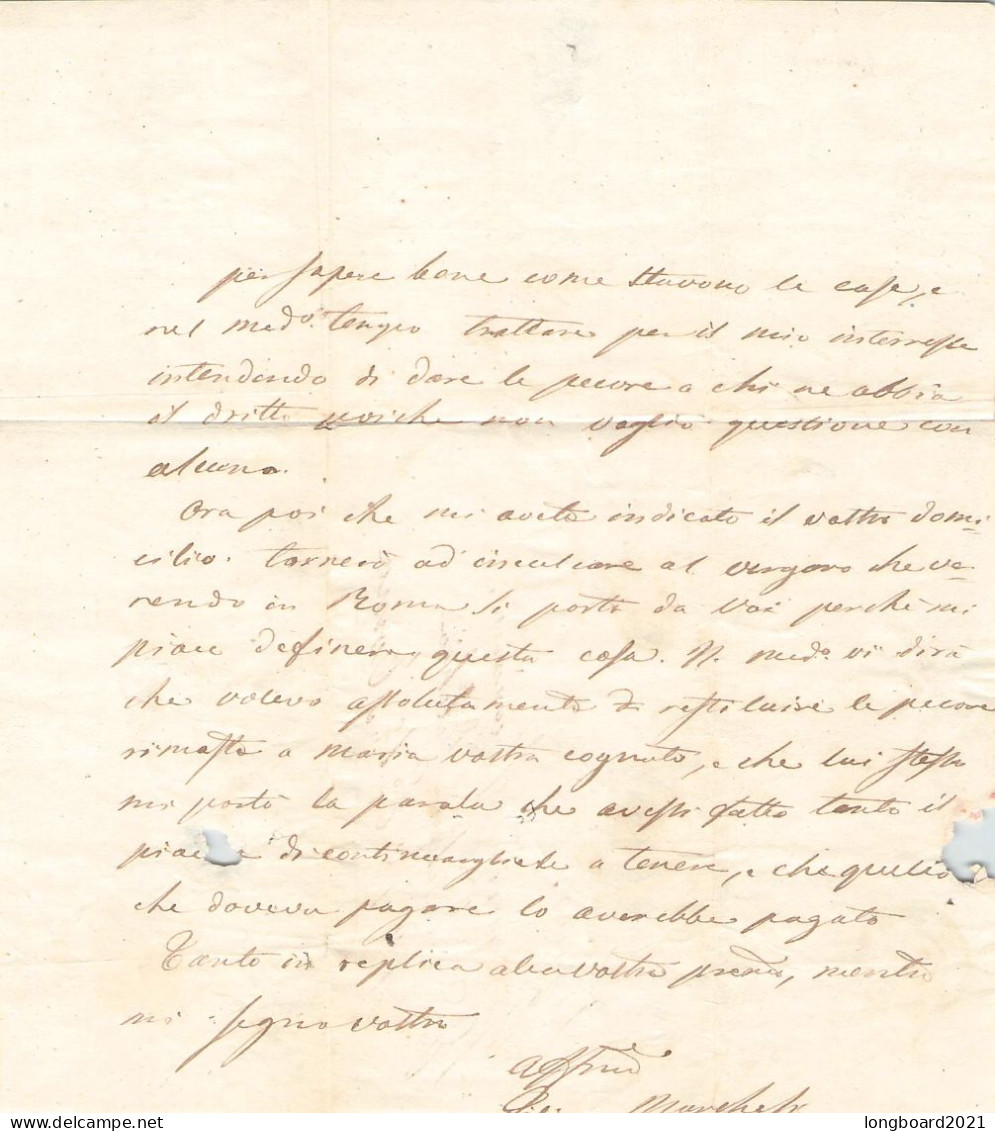 per sapere bene come stavono le cose, e
nel med.o tempo trattare per il mio interesse
intendendo di dare le pecore a chi ne abbia
il dritto poiche non voglio questione con
alcuno.
Ora poi che mi avete indicato il vostro domi
cilio. tornerò ad inculcare al vergaro che ve-
nendo in Roma si porti da voi perchè mi
piace definere questa cosa. Il med.o vi dirà
che volevo assolutamente restituire le pecore
rimaste a Maria vostra cognata, e che lui stesso
mi portò la parola che avessi fatto tanto il
di continuargliele a tenere, e che quello
che doveva pagare lo averebbe pagato
Tanto in replica alla vostra mentre
mi segno vostro
Marchesi
longboard2021